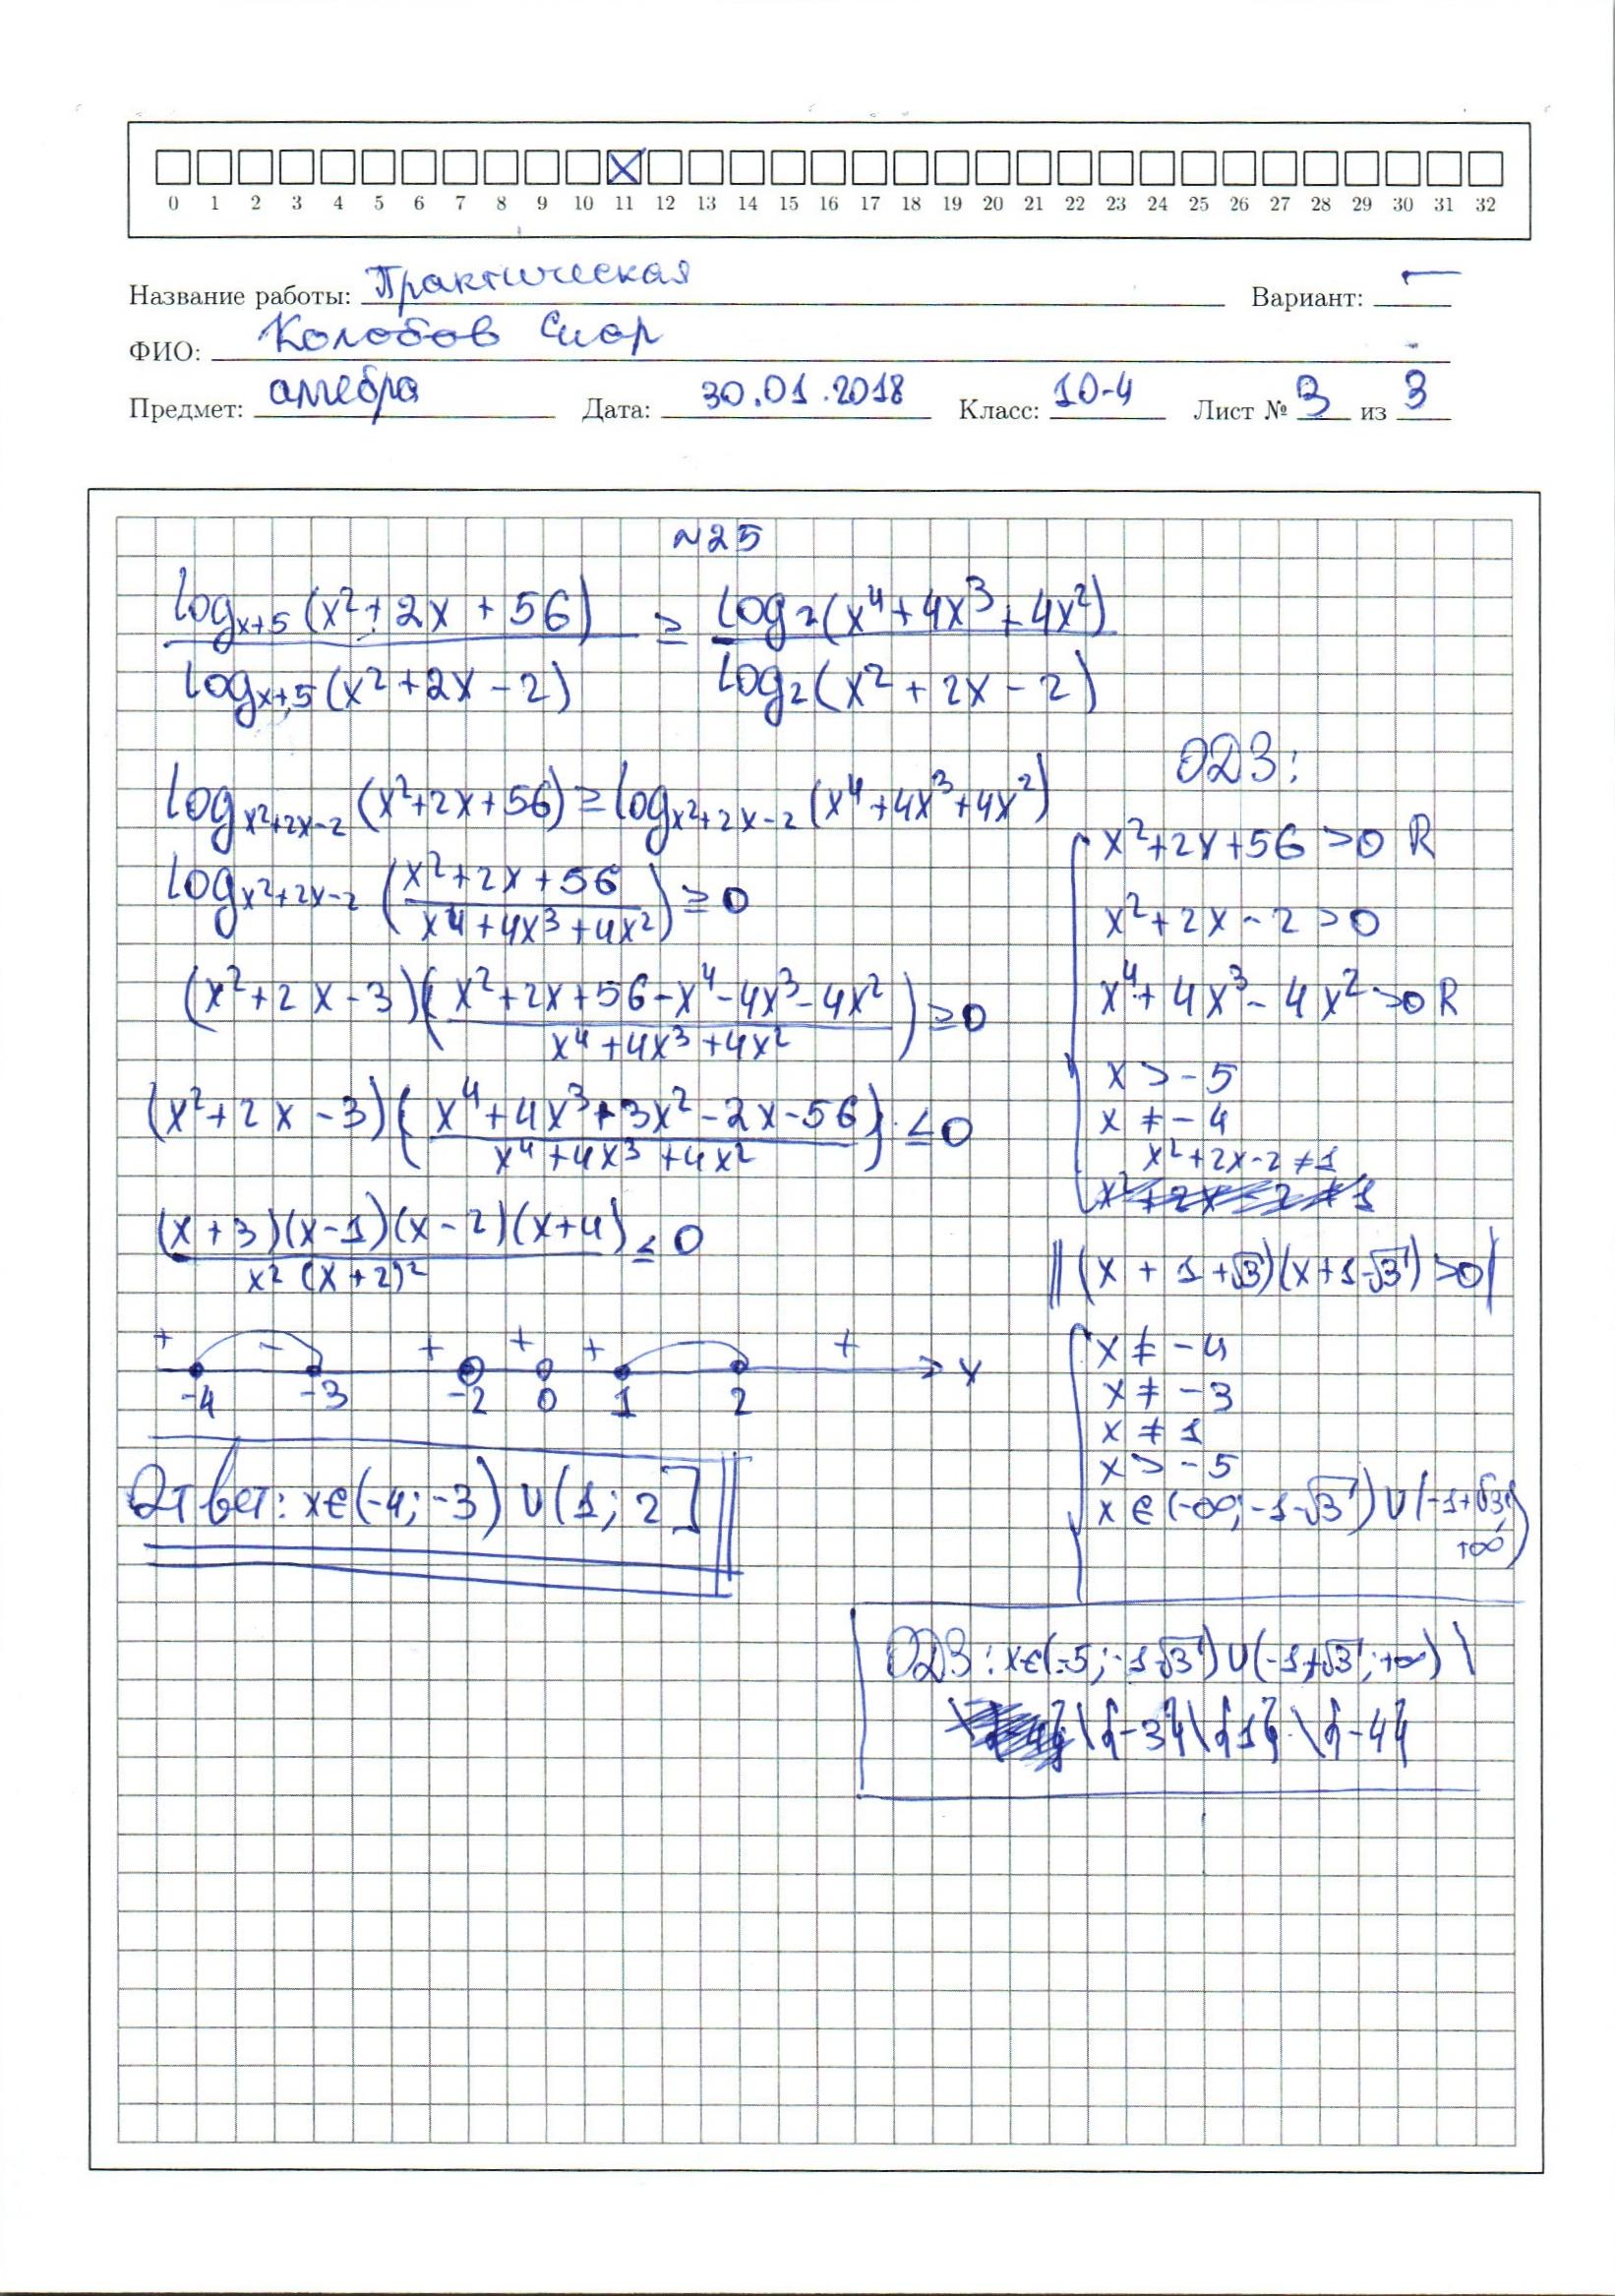 0 1 2 3 4 5 6 7 8 9 10 11 12 13 14 15 16 17 18 19 20 21 22 23 24 25 26 27 28 29 30 31 32
Название работы: Практическая Вариант: —
ФИО: Колобов
Предмет: алгебра Дата: 30.01.2018 Класс: 10-4 Лист № 3 из 3
№25
log_{x+5}(x²+2x+56) / log_{x+5}(x²+2x-2) ≥ log₂(x⁴+4x³+4x²) / log₂(x²+2x-2)
log_{x²+2x-2}(x²+2x+56) ≥ log_{x²+2x-2}(x⁴+4x³+4x²)
log_{x²+2x-2}((x²+2x+56)/(x⁴+4x³+4x²)) ≥ 0
(x²+2x-3)((x²+2x+56-x⁴-4x³-4x²)/(x⁴+4x³+4x²)) ≥ 0
(x²+2x-3)((x⁴+4x³+3x²-2x-56)/(x⁴+4x³+4x²)) ≤ 0
(x+3)(x-1)(x-2)(x+4)/(x²(x+2)²) ≤ 0
+ - + + + +
-4 -3 -2 0 1 2 x
Ответ: x∈(-4;-3)∪(1;2]
ОДЗ:
x²+2x+56>0 R
x²+2x-2>0
x⁴+4x³-4x²>0 R
x>-5
x≠-4
x²+2x-2≠1
x²+2x-2≠1
||(x+1+√3)(x+1-√3)>0|
x≠-4
x≠-3
x≠1
x>-5
x∈(-∞;-1-√3)∪(-1+√3;
+∞)
ОДЗ: x∈(-5;-1-√3)∪(-1+√3;+∞)\
\{-3}\{1}\{-4}